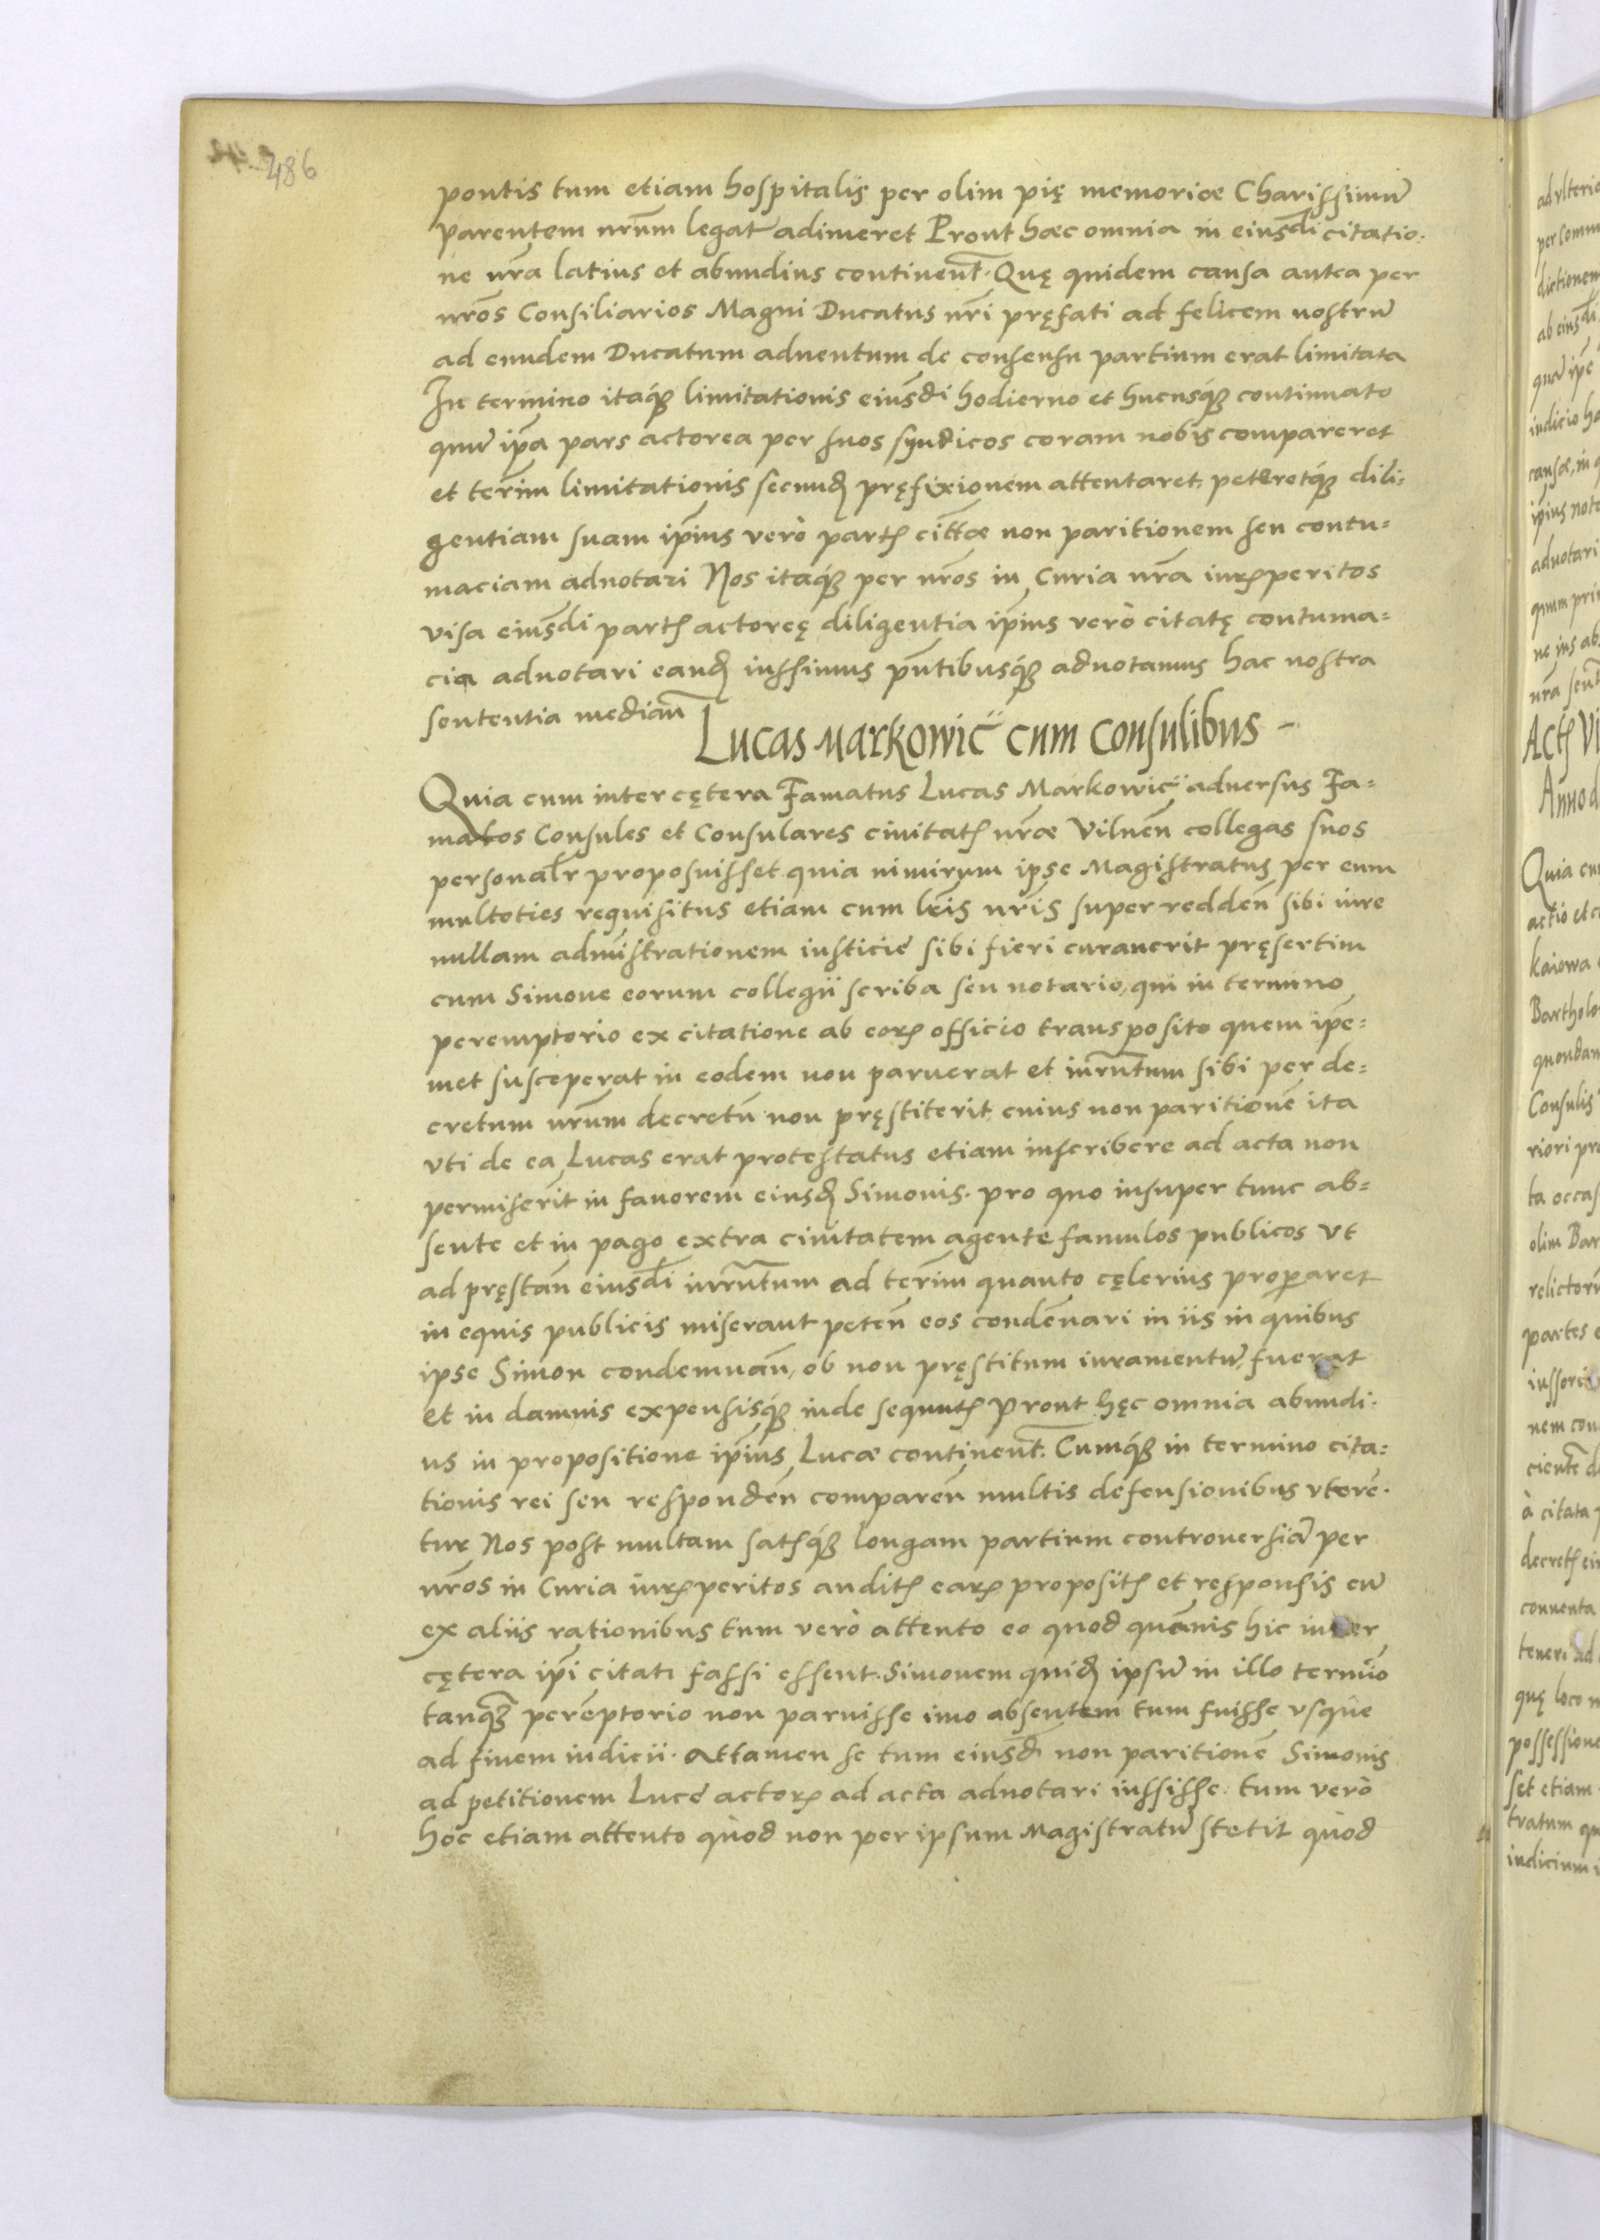 486
pontis tum etiam hospitalis per olim pię memoriae Charissimū
parentem nrūm legat adimeret Prout haec omnia in eiusdī citatio:
ne nrā latius et abundius continent̄. Quę quidem causa antea per
nrōs Consiliarios Magni Ducatus nrī pręfati ad felicem nostrū
ad eundem Ducatum aduentum de consensu partium erat limitata
In termino itaq́ꝫ limitationis eiusdī hodierno et hucusq́ꝫ continuato
quū ip̄a pars actorea per suos syndicos coram nobis compareret
et term̄ limitationis secundꝫ pręfixionem attentaret, peteretq́ꝫ dili:
gentiam suam ip̄ius verò partꝭ cittāe non paritionem seu contu=
maciam adnotari Nos itaq́ꝫ per nrōs in Curia nrā iurꝭperitos
visa eiusdī partꝭ actoreę diligentia ip̄ius verò citatę contuma=
cia adnotari eandꝫ iussimus pn̄tibusq́ꝫ adnotamus hac nostra
sententia median̄
Lucas Markowic̈ cum Consulibus –
Quia cum inter cętera Famatus Lucas Markowic̈ aduersus Fa=
matos Consules et Consulares ciuitatꝭ nrāe Vilnen̄ collegas suos
personalr̄ proposuisset quia nimirum ipse Magistratus per eum
multoties requisitus etiam cum lrīs nrīs super redden̄ sibi iure
nullam admīstrationem iusticie sibi fieri curauerit pręsertim
cum Simone eorum collegii scriba seu notario, qui in termino
peremptorio ex citatione ab eorꝭ officio transposito quem ipē=
met susceperat in eodem non paruerat et iurn̄tum sibi per de=
cretum nrūm decretū non pręstiterit, cuius non paritionē ita
vti de ea Lucas erat protestatus etiam inscribere ad acta non
permiserit in fauorem eiusdꝫ Simonis. pro quo insuper tunc ab=
sente et in pago extra ciuitatem agente famulos publicos vt
ad pręstan̄ eiusdī iurn̄tum ad term̄ quanto cęlerius properaret
in equis publicis miserant peten̄ eos condēnari in iis in quibus
ipse Simon condemnan̄, ob non pręstitum iuramentū, fuerat
et in damnis expensisq́ꝫ inde sequutꝭ Prout hęc omnia abundi:
us in propositione ip̄ius Lucae continent̄. Cumq́ꝫ in termino cita=
tionis rei seu responden̄ comparen̄ multis defensionibus vteren̄=
tur Nos post multam satꝭq́ꝫ longam partium controuersiā per
nrōs in Curia iurꝭperitos auditꝭ earꝭ propositꝭ et responsis cū
ex aliis rationibus tum verò attento eo quod quāuis hic inter
cętera ip̄i citati fassi essent. Simonem quidꝫ ipsū in illo termīo
tanq̄ꝫ perēptorio non paruisse imo absentem tum fuisse vsque
ad finem iudicii. Attamen se tum eiusd̄ non paritionē Simonis
ad petitionem Lucę actorꝭ ad acta adnotari iussisse. tum verò
hoc etiam attento quòd non per ipsum Magistratū stetit quòd